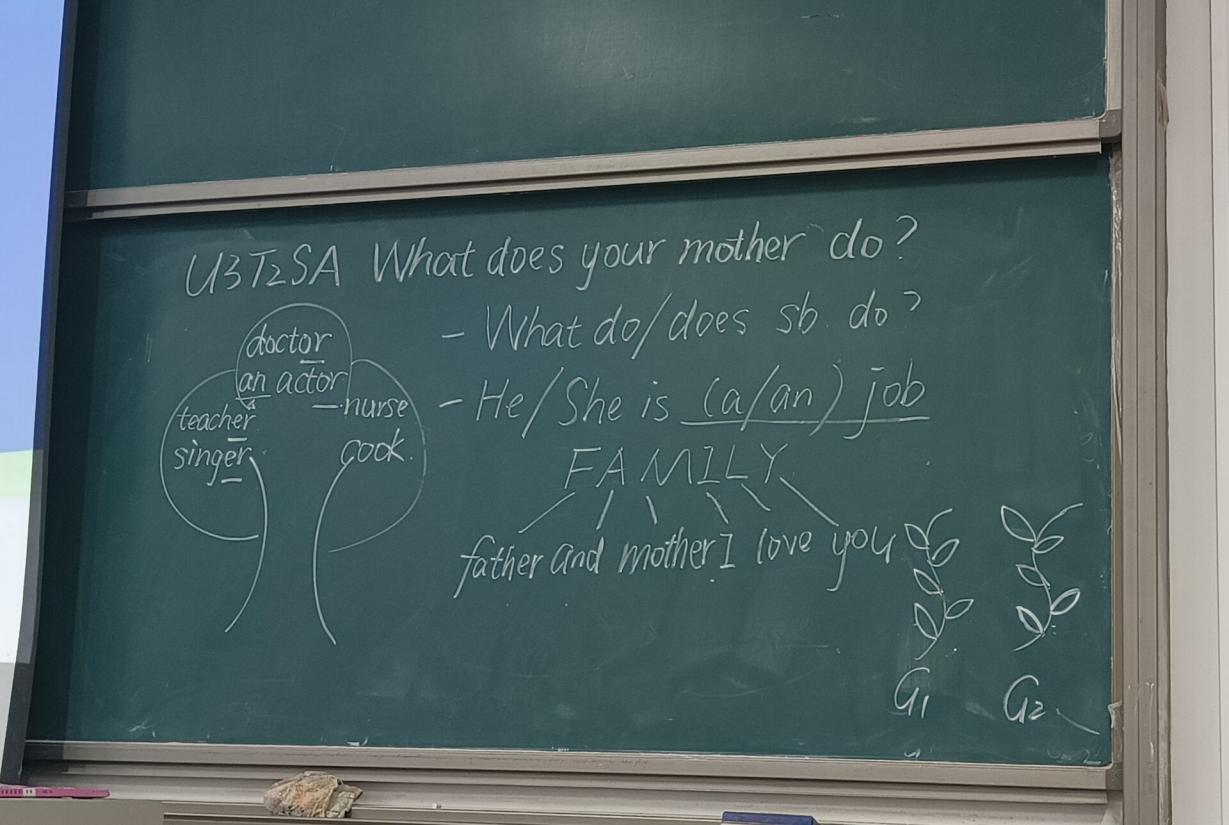 U3T2SA What does your mother do?
- What do/does sb. do?
- He/She is (a/an) job
doctor
an actor
teacher
singer
nurse
cook.
FAMILY
father and mother I love you
G1
G2